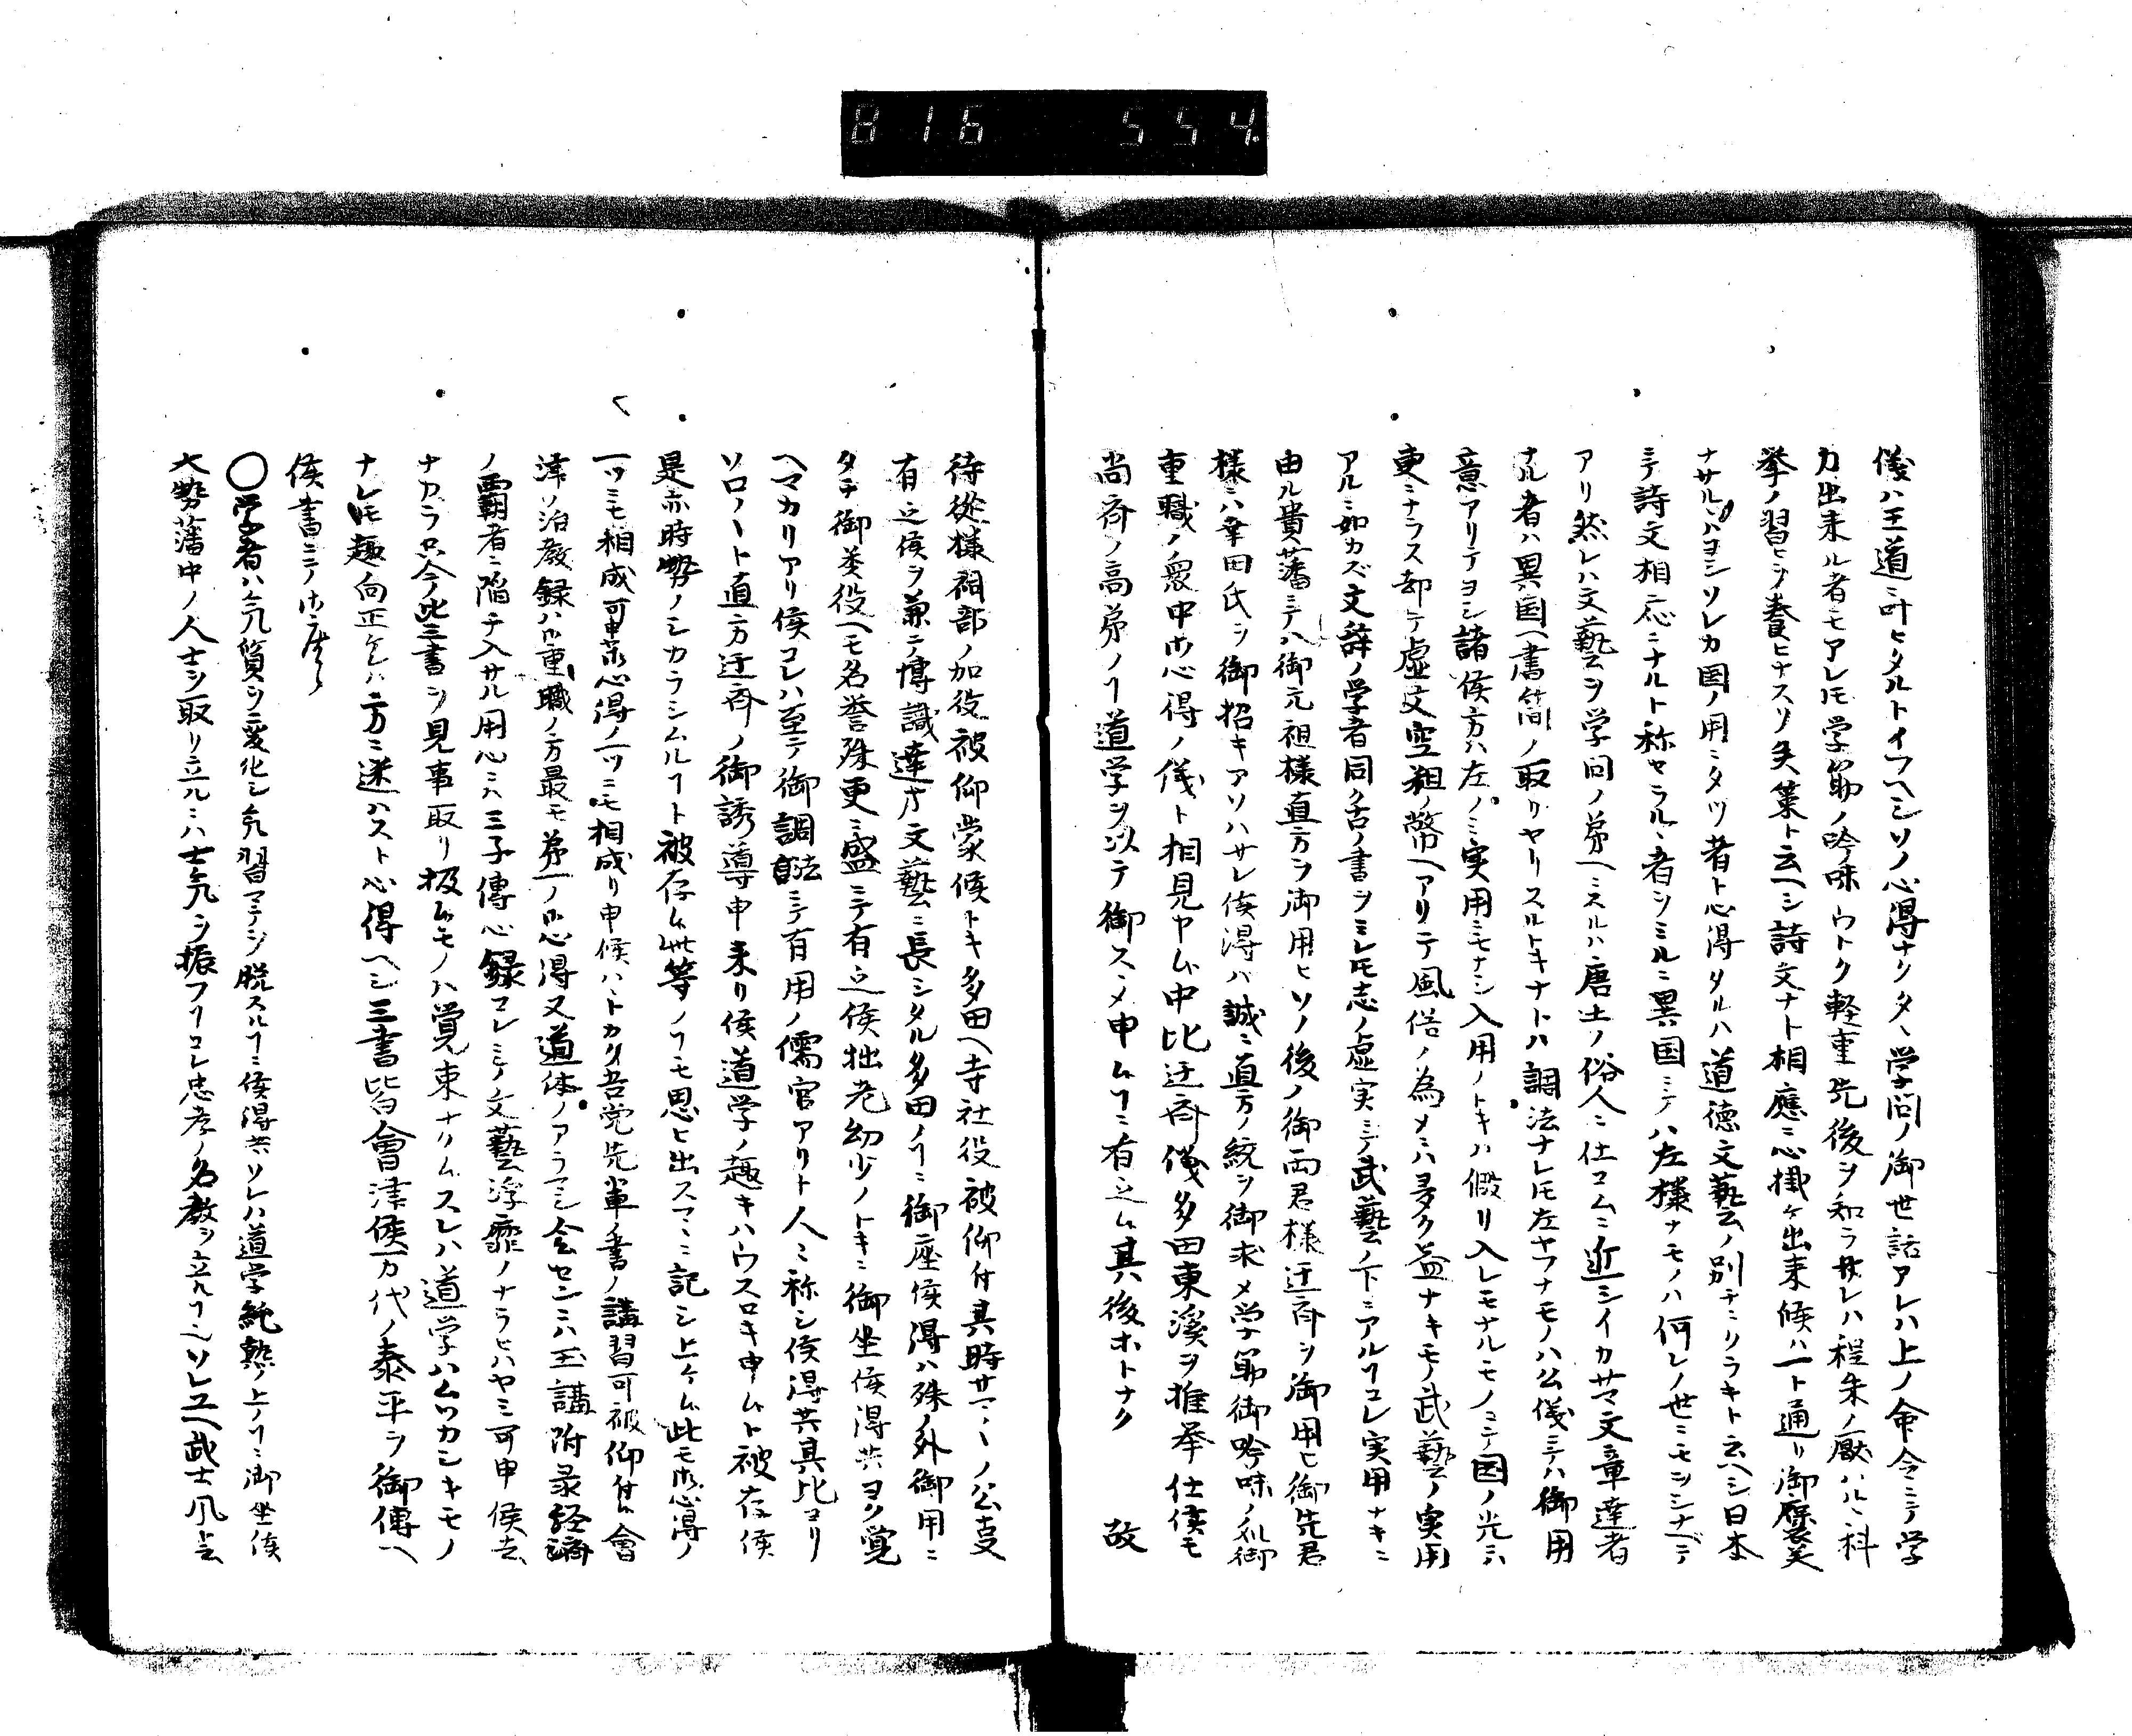 816 554
儀ハ王道ニ叶ヒタルトイフヘシソノ心得ナクタヽ学問ノ御世話アレハ上ノ命令ニテ学
力出来ル者モアレ𪜈学筋ノ吟味ウトク軽重先後ヲ知ラサレハ程朱ノ厭ハルヽ科
挙ノ習ヒヲ養ヒナスソ失策ト云ヘシ詩文ナト相應ニ心掛ケ出来候ハ一ト通リ御褒美
ナサルハヨシソレカ国ノ用ニタツ者ト心得タルハ道徳文藝ノ別チニクラキト云ヘシ日本
ニテ詩文相応ニナルト称セラルヽ者ヲミルニ異国ニテハ左様ナモノハ何レノ世ニモヲシナヘテ
アリ然レハ文藝ヲ学問ノ第一ニスルハ唐土ノ俗人ニ仕コムニ近シイカサマ文章達者
ナル者ハ異国ヘ書簡ノ取リヤリスルトキナトハ調法ナレ𪜈左ヤフナモノハ公儀ニテハ御用
意アリテヨシ諸侯方ハ左ノミ実用ニモナシ入用ノトキハ假リ入レモナルモノニテ国ノ光ニハ
更ニナラス却テ虚文空粗ノ弊ヘアリテ風俗ノ為メニハ多ク益ナキモノ武藝ノ実用
アルニ如カズ文辞ノ学者同ク舌ノ書ヲミレ𪜈志ノ虚実ニテ武藝ノ下ニアルヿコレ実用ナキニ
由ル貴藩ニテハ御元祖様直方ヲ御用ヒソノ後ノ御両君様迂斎ヲ御用ヒ御先君
様ニハ幸田氏ヲ御招キアソハサレ候得ハ誠ニ直方ノ統ヲ御求メ学筋御吟味ノ𠮷御
重職ノ衆中御心得ノ儀ト相見ヤム中比迂斎儀多田東溪ヲ推挙仕候モ
尚斎ノ高弟ノヿ道学ヲ以テ御スヽメ申ムヿニ有之ム其後ホトナク　故
待從様祠部ノ加役被仰蒙候トキ多田ヘ寺社役被仰付其時サマ〱ノ公支
有之候ヲ兼テ博識達才文藝ニ長シタル多田ノヿニ御座候得ハ殊ノ外御用ニ
タチ御美役ヘモ名誉殊更ニ盛ニテ有之候拙老幼少ノトキニ御坐候得共ヨク覚
ヘマカリアリ候コレハ至テ御調法ニテ有用ノ儒官アリト人ミ称シ候得共其比ヨリ
ソロ〱ト直方迂斎ノ御誘導申来リ候道学ノ趣キハウスロキ申ムト被存候
是亦時勢ノシカラシムルヿト被存ム此等ノヿモ思ヒ出スマヽニ記シ上ケム此モ御心得ノ
一ツニモ相成可申哉心得ノ一ツニモ相成リ申候ハヽトカク吾党先軰ノ書ノ講習可被仰付ム會
津ノ治教録ハ御重職ノ方最モ第一ノ御心得又道体ノアラマシ会センニハ玉講附录経済
ノ覇者ニ陥チ入サル用心ニハ三子傳心録コレミノ文藝浮靡ノナラヒハヤミ可申候去
ナカラ只今此三書ヲ見事取リ扱ムモノハ覚束ナクムスレハ道学ハムツカシキモノ
ナレ𪜈趣向正ケレハ二方ニ迷ハスト心得ヘシ三書皆會津侯万代ノ泰平ヲ御傳ヘ
候書ニテ御座候
〇学者ハ氣質ヲ変化シ氣習マテヲ脱スルヿニ候得共ソレハ道学純熟ノ上ノヿニ御坐候
大勢藩中ノ人士ヲ取リ立ルニハ士氣ヲ振フヿコレ忠孝ノ名教ヲ立ルヿ也ソレユヘ武士風ト云